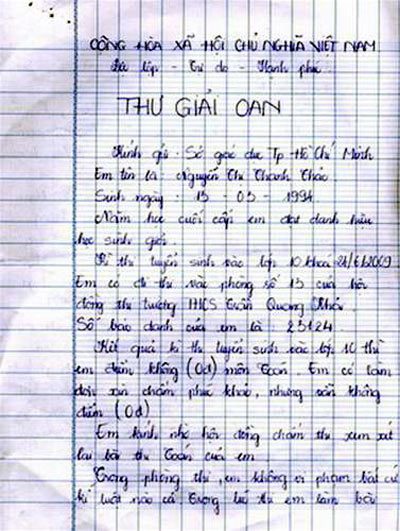 CỘNG HÒA XÃ HỘI CHỦ NGHĨA VIỆT NAM
Độc lập - Tự do - Hạnh phúc
THƯ GIẢI OAN
Kính gửi : Sở giáo dục Tp Hồ Chí Minh
Em tên là : Nguyễn Thị Thanh Thảo
Sinh ngày : 13 - 03 - 1994
Năm học cuối cấp em đạt danh hiệu
học sinh giỏi.
Kì thi tuyển sinh vào lớp 10 khoá 21/6/2009
Em có đi thi vào phòng số 13 của hội
đồng thi trường THCS Trần Quang Khải
Số báo danh của em là : 23124
Kết quả kì thi tuyển sinh vào lớp 10 thì
em điểm không (0đ) môn Toán. Em có làm
đơn xin chấm phúc khảo, nhưng vẫn không
điểm (0đ)
Em kính nhờ hội đồng chấm thi xem xét
lại bài thi Toán của em.
Trong phòng thi, em không vi phạm bất cứ
kỉ luật nào cả. Trong lúc thi em làm bài